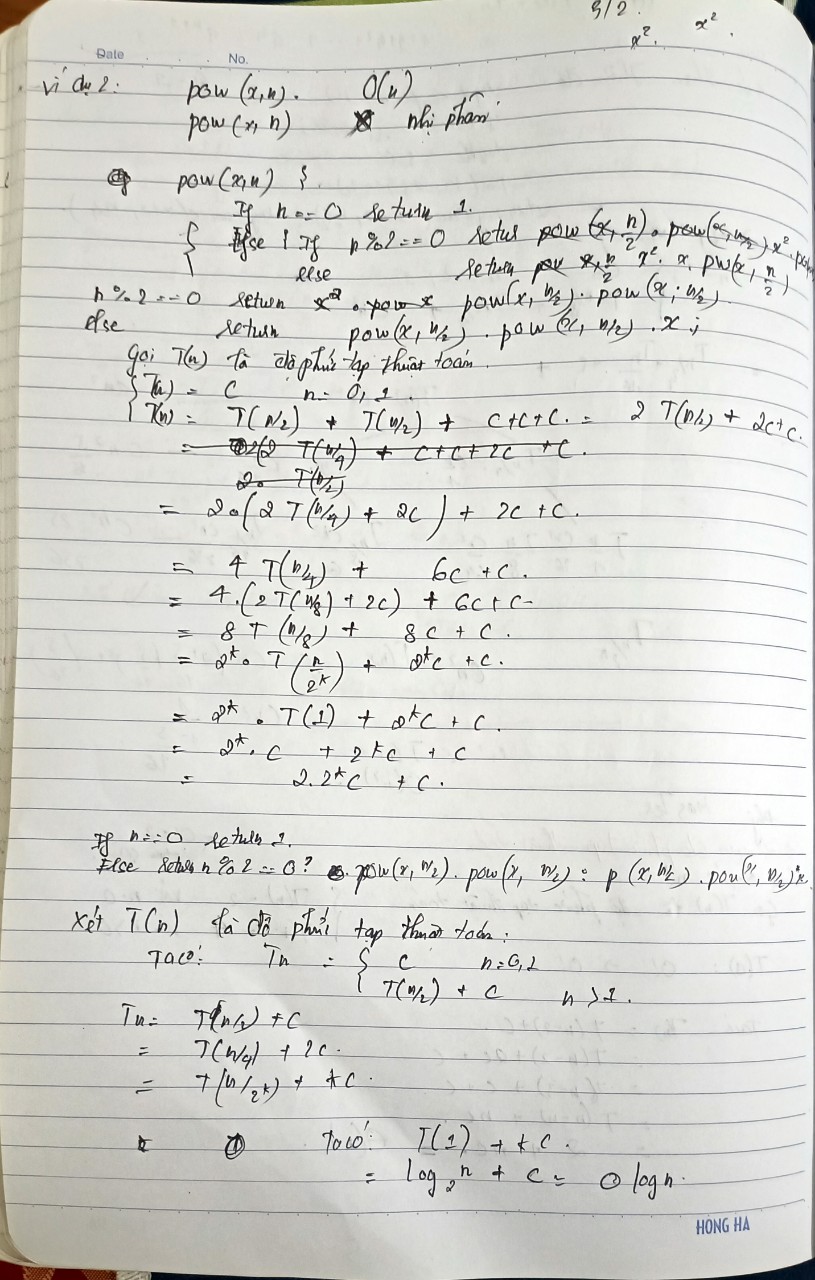 9/2.
x². x².
Date No.
Ví dụ 2: pow (x,n). O(n)
pow (x, n) nhị phân
pow(x,n) {
If n == 0 return 1.
Else { If n%2==0 return pow(x, n/2) . pow(x, n/2) x².
else return x². x. pw(x, n/2)
n%2 == 0 return pow(x, n/2). pow(x; n/2)
else return pow(x, n/2) . pow (x, n/2) . x ;
Gọi T(n) là độ phức tạp thuật toán.
T(n) = C n = 0, 1.
T(n) = T(n/2) + T(n/2) + C+C+C. = 2 T(n/2) + 2C+C.
= 2(2 T(n/4) + C+C+2C +C.
2. T(n/2)
= 2.(2 T(n/4) + 2C) + 2C + C.
= 4 T(n/4) + 6C + C.
= 4.(2T(n/8) + 2C) + 6C + C
= 8 T (n/8) + 8C + C.
= 2ᵏ. T(n/2ᵏ) + 2ᵏC + C.
= 2ᵏ . T(1) + 2ᵏC + C.
= 2ᵏ. C + 2ᵏC + C
= 2.2ᵏC + C.
If n==0 return 1.
Else return n%2 == 0? pow(x, n/2). pow(x, n/2) : p(x, n/2). pow(x, n/2)*x.
Xét T(n) là độ phức tạp thuật toán:
Ta có: Tn = { C n=0,1
T(n/2) + C n > 1.
Tn = T(n/2) + C
= T(n/4) + 2C.
= T(n/2ᵏ) + kC.
Ta có: T(1) + kC.
= log₂n + C = O logn.
HONG HA